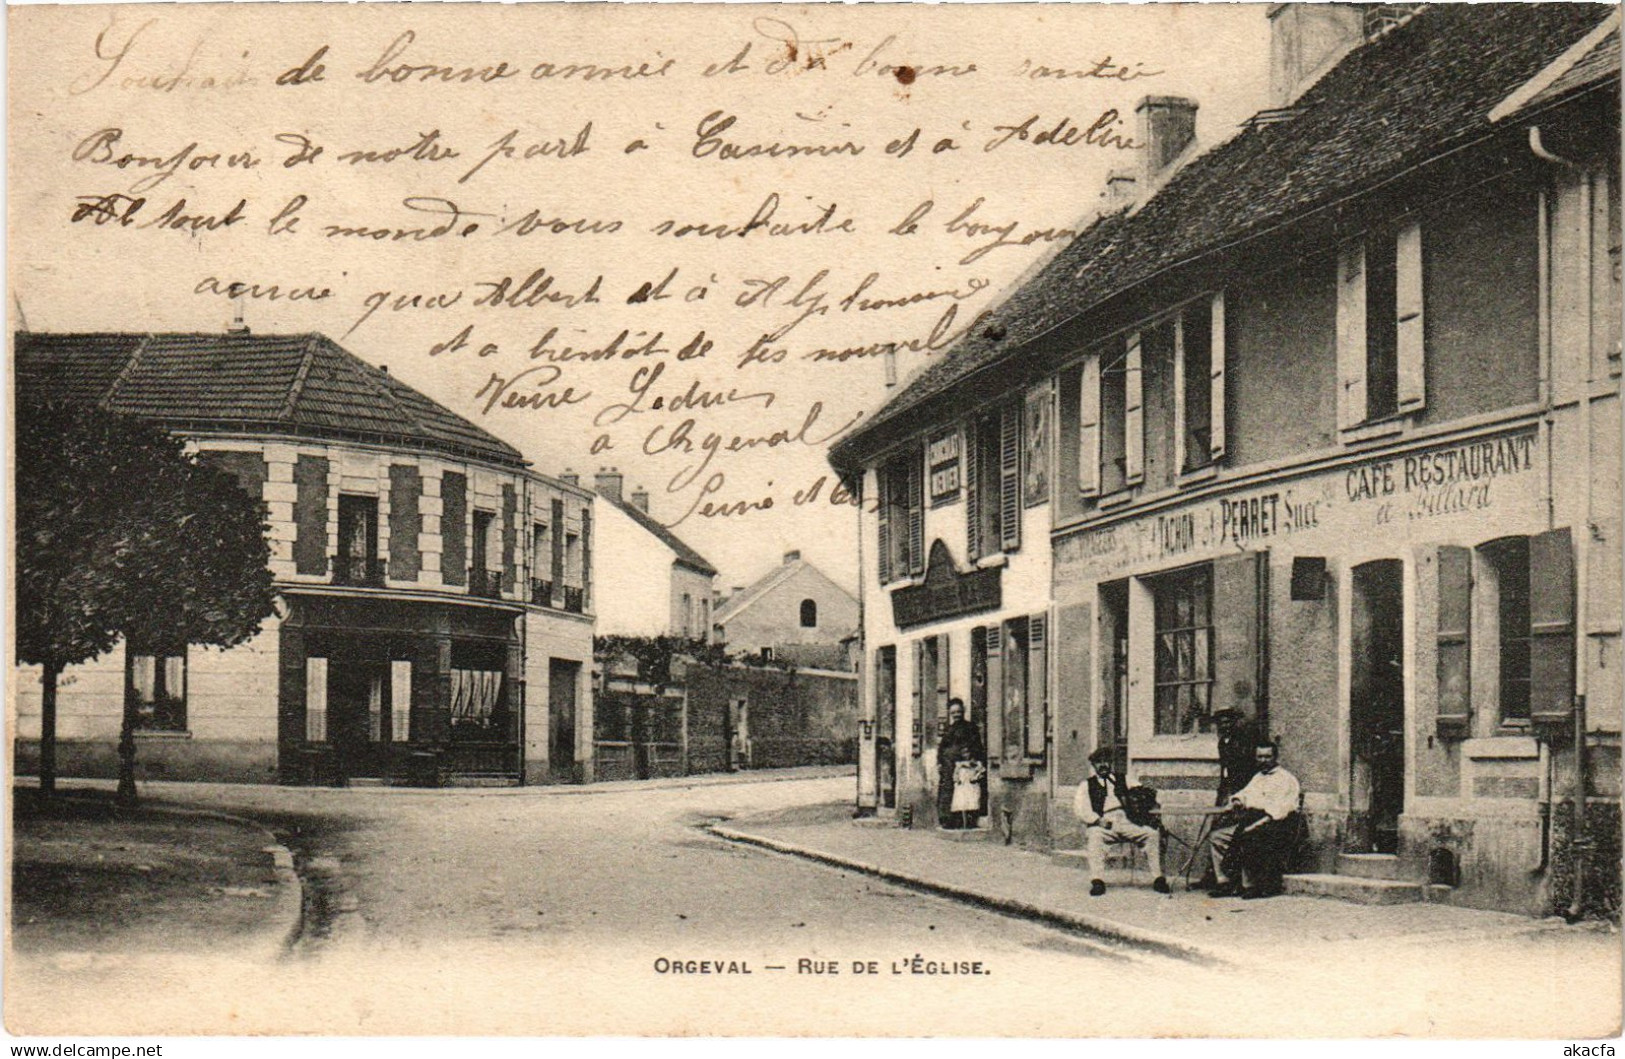 Souhait de bonne année et da bonne santée
Bonjour de notre part à Casimir et à Adeline
tout le monde vous souhaite le bonjour
que Albert et à Alphonsine
et a bientôt de tes nouvel
Veuve Leduc
a Orgeval
Seine et
CAFÉ RESTAURANT
et Billard
TACHON PERRET Succ
ORGEVAL — RUE DE L'ÉGLISE.
akacfa
delcampe.net